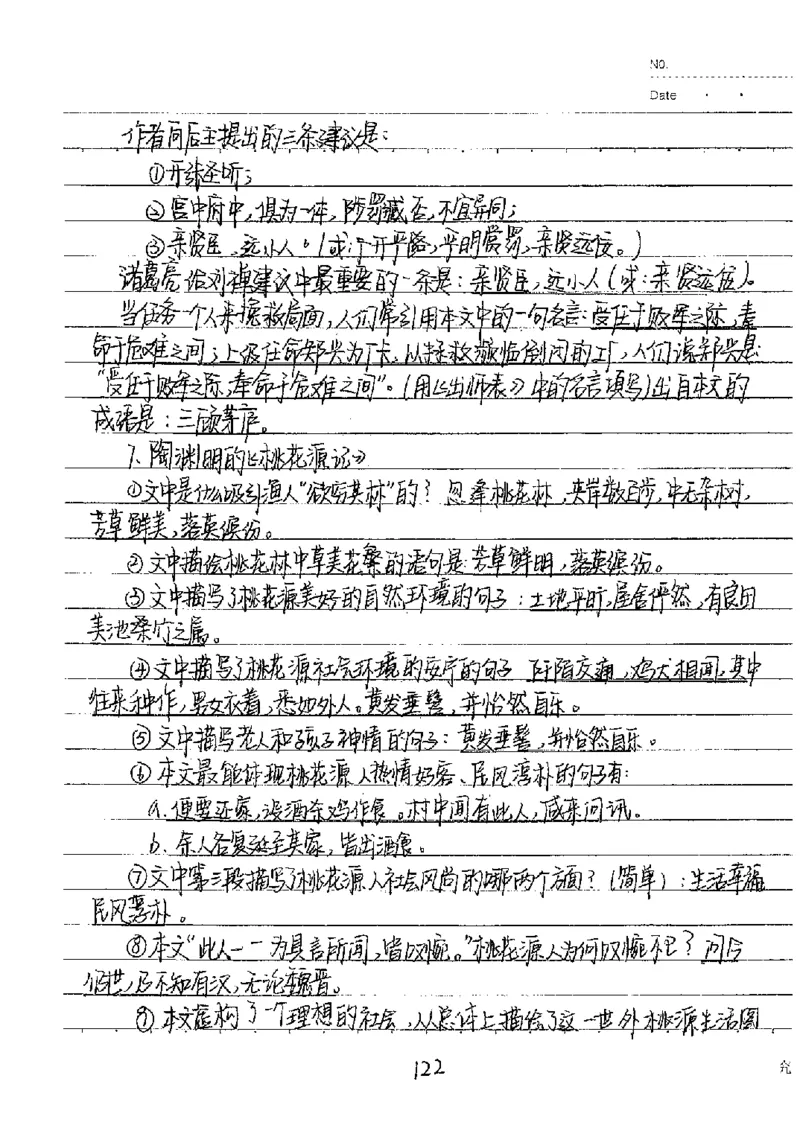 NO.
Date
作者向后主提出的三条建议是:
①开张圣听;
②宫中府中,俱为一体,陟罚臧否,不宜异同;
③亲贤臣,远小人。(或:开平路,平明赏罚,亲贤远佞。)
诸葛亮给刘禅建议中最重要的一条是:亲贤臣,远小人(或:亲贤远佞)。
当任务一个人来挽救局面,人们常引用本文中的一句名言:受任于败军之际,奉
命于危难之间;上级任命郑兴为厂长,以拯救濒临倒闭的工厂,人们说郑兴是
“受任于败军之际,奉命于危难之间”。(用《出师表》中的名言填写)出自本文的
成语是:三顾茅庐。
7、陶渊明的《桃花源记》
①文中是什么吸引渔人“欲穷其林”的? 忽逢桃花林,夹岸数百步,中无杂树,
芳草鲜美,落英缤纷。
②文中描绘桃花林中草美花繁的语句是:芳草鲜明,落英缤纷。
③文中描写了桃花源美好的自然环境的句子:土地平旷,屋舍俨然,有良田
美池桑竹之属。
④文中描写了桃花源社会环境的安宁的句子 阡陌交通,鸡犬相闻,其中
往来种作,男女衣着,悉如外人。黄发垂髫,并怡然自乐。
⑤文中描写老人和孩子神情的句子:黄发垂髫,并怡然自乐。
⑥本文最能体现桃花源人热情好客、民风淳朴的句子有:
a.便要还家,设酒杀鸡作食。村中闻有此人,咸来问讯。
b.余人各复延至其家,皆出酒食。
⑦文中第三段描写了桃花源人社会风尚的哪两个方面?(简单):生活幸福
民风淳朴。
⑧本文“此人一一为具言所闻,皆叹惋。”桃花源人为何叹惋不已? 问今
何世,乃不知有汉,无论魏晋。
⑨本文虚构了一个理想的社会,从总体上描绘了这一世外桃源生活图
122
究